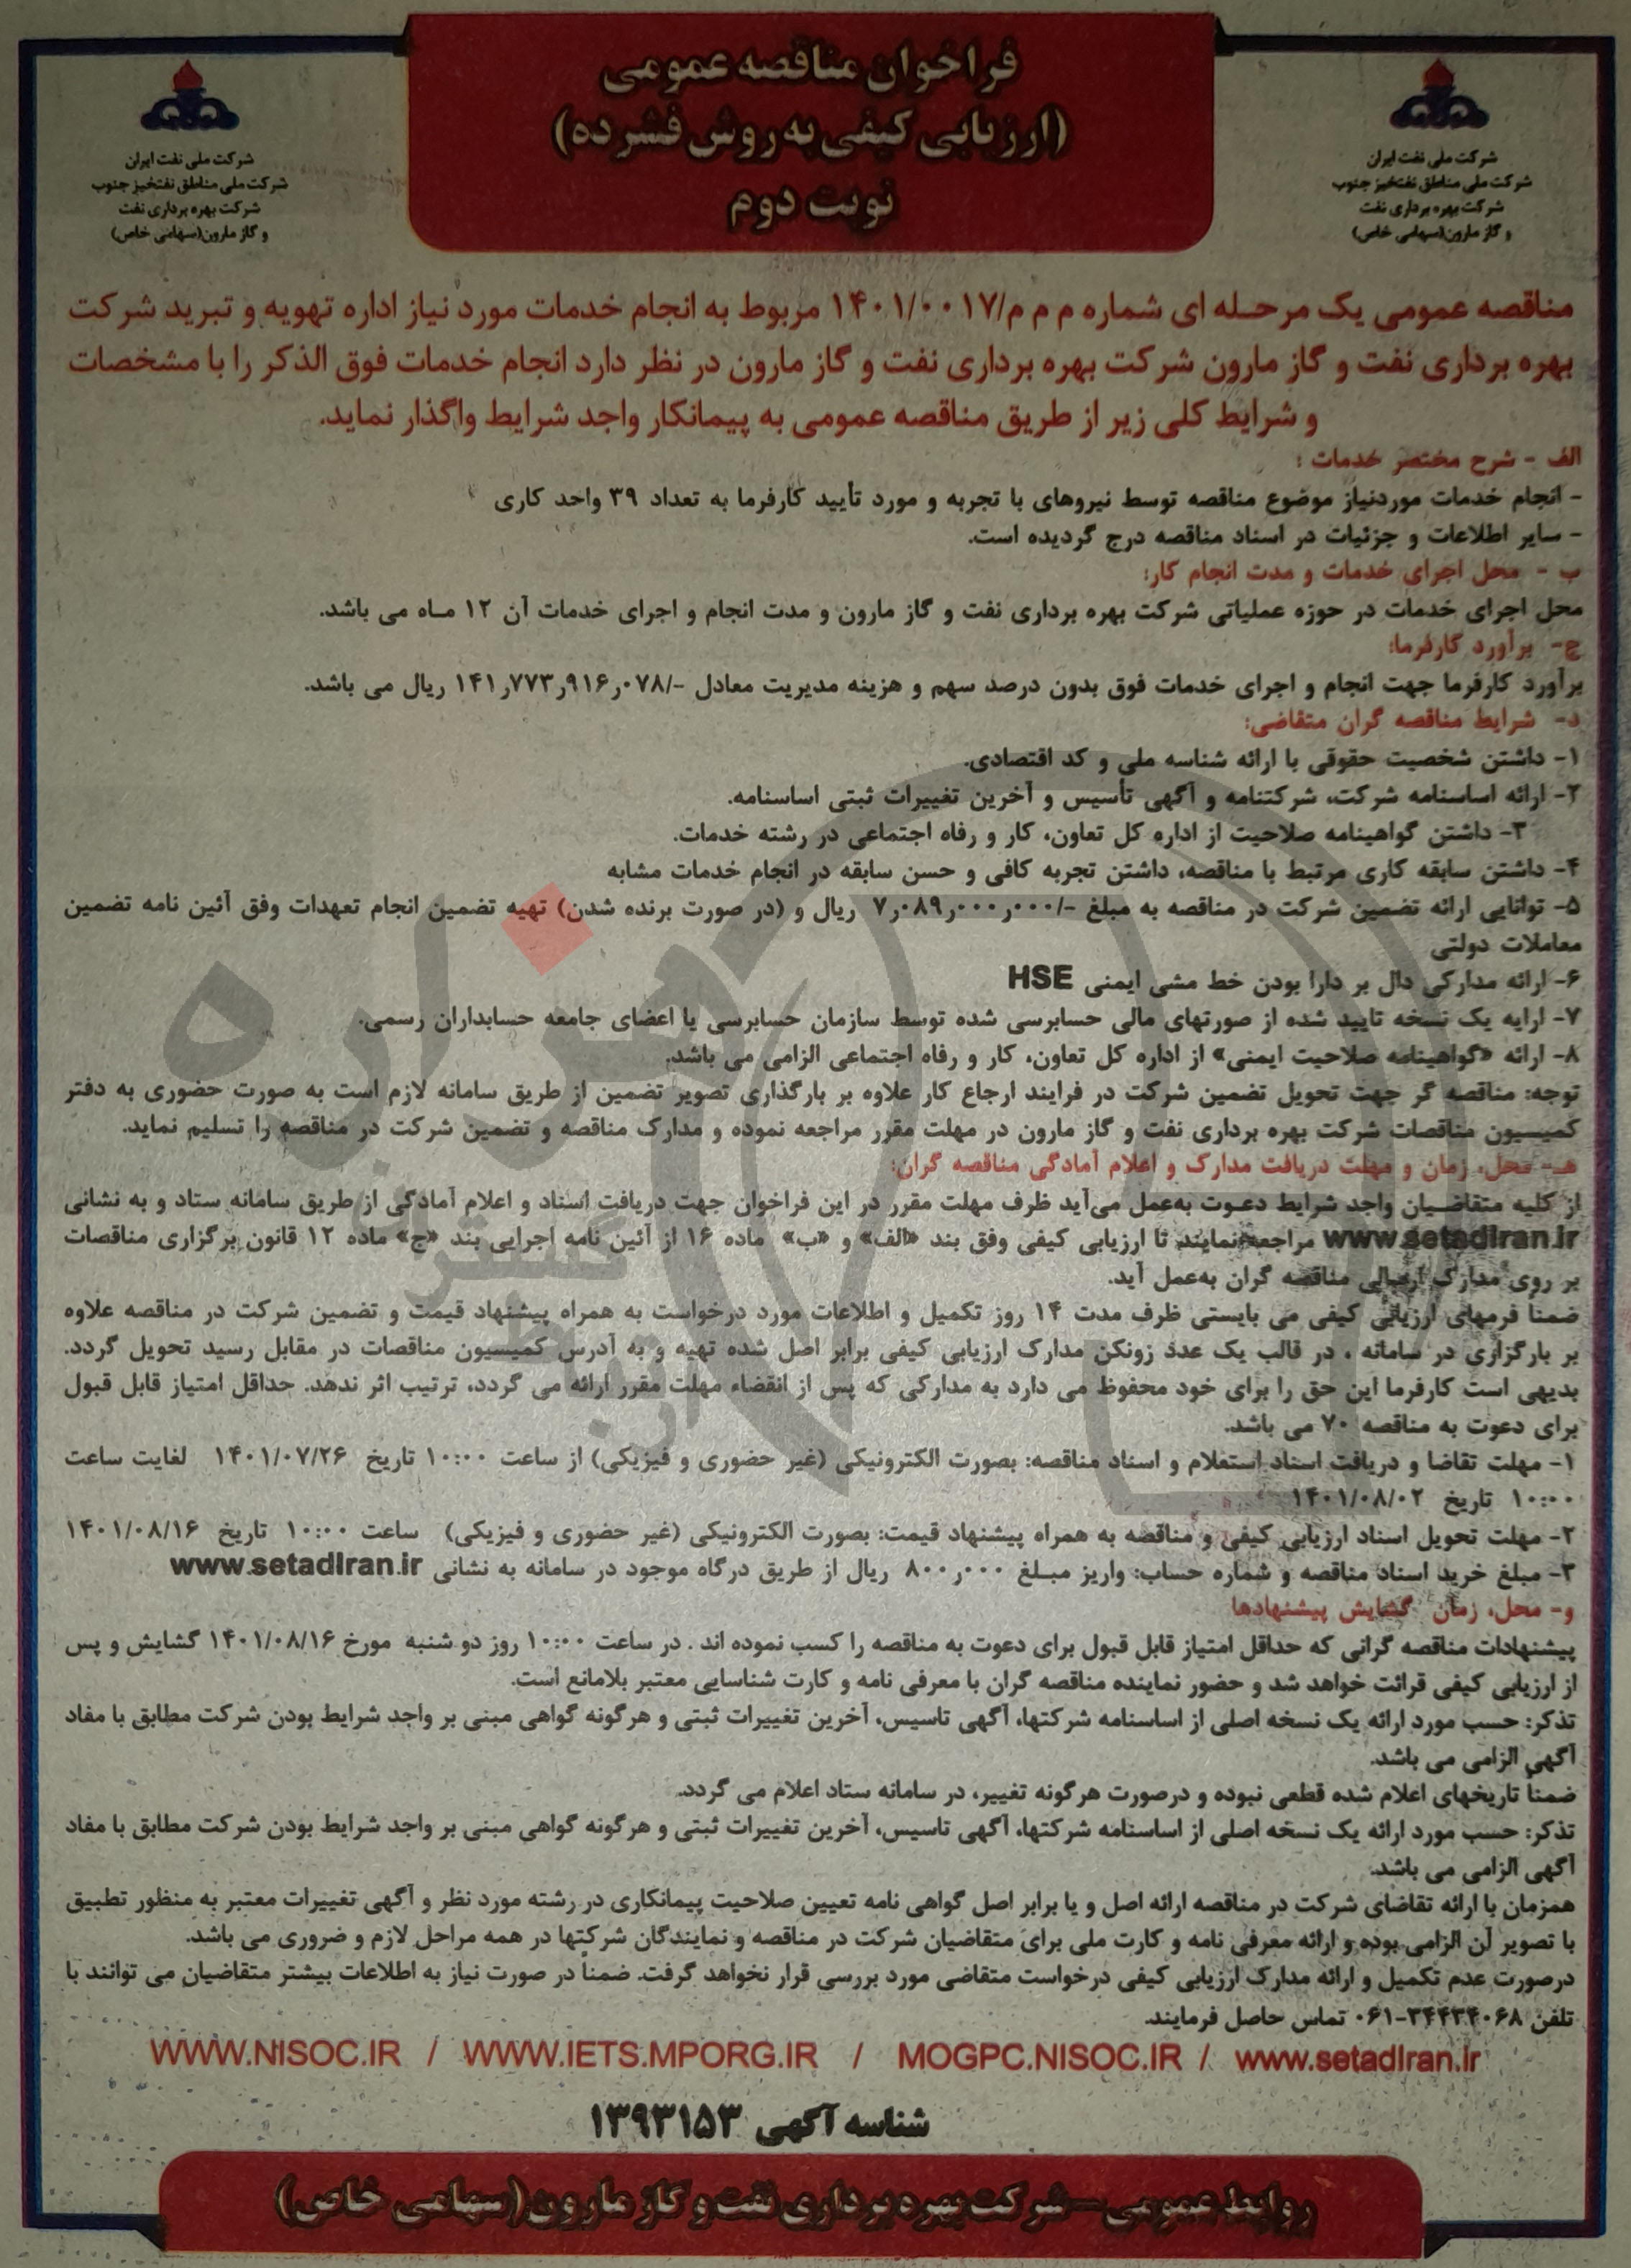 فراخوان مناقصه عمومی
(ارزیابی کیفی به روش فشرده)
نوبت دوم
شرکت ملی نفت ایران
شرکت ملی مناطق نفتخیز جنوب
شرکت بهره برداری نفت
و گاز مارون(سهامی خاص)
شرکت ملی نفت ایران
شرکت ملی مناطق نفتخیز جنوب
شرکت بهره برداری نفت
و گاز مارون(سهامی خاص)
مناقصه عمومی یک مرحله ای شماره م م م/۱۴۰۱/۰۰۱۷ مربوط به انجام خدمات مورد نیاز اداره تهویه و تبرید شرکت
بهره برداری نفت و گاز مارون شرکت بهره برداری نفت و گاز مارون در نظر دارد انجام خدمات فوق الذکر را با مشخصات
و شرایط کلی زیر از طریق مناقصه عمومی به پیمانکار واجد شرایط واگذار نماید.
الف - شرح مختصر خدمات :
- انجام خدمات موردنیاز موضوع مناقصه توسط نیروهای با تجربه و مورد تأیید کارفرما به تعداد ۳۹ واحد کاری
- سایر اطلاعات و جزئیات در اسناد مناقصه درج گردیده است.
ب - محل اجرای خدمات و مدت انجام کار:
محل اجرای خدمات در حوزه عملیاتی شرکت بهره برداری نفت و گاز مارون و مدت انجام و اجرای خدمات آن ۱۲ ماه می باشد.
ج- برآورد کارفرما:
برآورد کارفرما جهت انجام و اجرای خدمات فوق بدون درصد سهم و هزینه مدیریت معادل -/۱۴۱٫۷۷۳٫۹۱۶٫۰۷۸ ریال می باشد.
د- شرایط مناقصه گران متقاضی:
۱- داشتن شخصیت حقوقی با ارائه شناسه ملی و کد اقتصادی.
۲- ارائه اساسنامه شرکت، شرکتنامه و آگهی تأسیس و آخرین تغییرات ثبتی اساسنامه.
۳- داشتن گواهینامه صلاحیت از اداره کل تعاون، کار و رفاه اجتماعی در رشته خدمات.
۴- داشتن سابقه کاری مرتبط با مناقصه، داشتن تجربه کافی و حسن سابقه در انجام خدمات مشابه
۵- توانایی ارائه تضمین شرکت در مناقصه به مبلغ -/۷٫۰۸۹٫۰۰۰٫۰۰۰ ریال و (در صورت برنده شدن) تهیه تضمین انجام تعهدات وفق آئین نامه تضمین
معاملات دولتی
۶- ارائه مدارکی دال بر دارا بودن خط مشی ایمنی HSE
۷- ارایه یک نسخه تایید شده از صورتهای مالی حسابرسی شده توسط سازمان حسابرسی یا اعضای جامعه حسابداران رسمی.
۸- ارائه «گواهینامه صلاحیت ایمنی» از اداره کل تعاون، کار و رفاه اجتماعی الزامی می باشد.
توجه: مناقصه گر جهت تحویل تضمین شرکت در فرایند ارجاع کار علاوه بر بارگذاری تصویر تضمین از طریق سامانه لازم است به صورت حضوری به دفتر
کمیسیون مناقصات شرکت بهره برداری نفت و گاز مارون در مهلت مقرر مراجعه نموده و مدارک مناقصه و تضمین شرکت در مناقصه را تسلیم نماید.
هـ- محل، زمان و مهلت دریافت مدارک و اعلام آمادگی مناقصه گران:
از کلیه متقاضیان واجد شرایط دعوت به‌عمل می‌آید ظرف مهلت مقرر در این فراخوان جهت دریافت اسناد و اعلام آمادگی از طریق سامانه ستاد و به نشانی
www.setadIran.ir مراجعه نمایند تا ارزیابی کیفی وفق بند «الف» و «ب» ماده ۱۶ از آئین نامه اجرایی بند «ج» ماده ۱۲ قانون برگزاری مناقصات
بر روی مدارک ارسالی مناقصه گران به‌عمل آید.
ضمناً فرمهای ارزیابی کیفی می بایستی ظرف مدت ۱۴ روز تکمیل و اطلاعات مورد درخواست به همراه پیشنهاد قیمت و تضمین شرکت در مناقصه علاوه
بر بارگزاری در سامانه ، در قالب یک عدد زونکن مدارک ارزیابی کیفی برابر اصل شده تهیه و به آدرس کمیسیون مناقصات در مقابل رسید تحویل گردد.
بدیهی است کارفرما این حق را برای خود محفوظ می دارد به مدارکی که پس از انقضاء مهلت مقرر ارائه می گردد، ترتیب اثر ندهد. حداقل امتیاز قابل قبول
برای دعوت به مناقصه ۷۰ می باشد.
۱- مهلت تقاضا و دریافت اسناد استعلام و اسناد مناقصه: بصورت الکترونیکی (غیر حضوری و فیزیکی) از ساعت ۱۰:۰۰ تاریخ ۱۴۰۱/۰۷/۲۶ لغایت ساعت
۱۰:۰۰ تاریخ ۱۴۰۱/۰۸/۰۲
۲- مهلت تحویل اسناد ارزیابی کیفی و مناقصه به همراه پیشنهاد قیمت: بصورت الکترونیکی (غیر حضوری و فیزیکی) ساعت ۱۰:۰۰ تاریخ ۱۴۰۱/۰۸/۱۶
۳- مبلغ خرید اسناد مناقصه و شماره حساب: واریز مبلغ ۸۰۰٫۰۰۰ ریال از طریق درگاه موجود در سامانه به نشانی www.setadIran.ir
و- محل، زمان گشایش پیشنهادها
پیشنهادات مناقصه گرانی که حداقل امتیاز قابل قبول برای دعوت به مناقصه را کسب نموده اند . در ساعت ۱۰:۰۰ روز دو شنبه مورخ ۱۴۰۱/۰۸/۱۶ گشایش و پس
از ارزیابی کیفی قرائت خواهد شد و حضور نماینده مناقصه گران با معرفی نامه و کارت شناسایی معتبر بلامانع است.
تذکر: حسب مورد ارائه یک نسخه اصلی از اساسنامه شرکتها، آگهی تاسیس، آخرین تغییرات ثبتی و هرگونه گواهی مبنی بر واجد شرایط بودن شرکت مطابق با مفاد
آگهی الزامی می باشد.
ضمناً تاریخهای اعلام شده قطعی نبوده و درصورت هرگونه تغییر، در سامانه ستاد اعلام می گردد.
تذکر: حسب مورد ارائه یک نسخه اصلی از اساسنامه شرکتها، آگهی تاسیس، آخرین تغییرات ثبتی و هرگونه گواهی مبنی بر واجد شرایط بودن شرکت مطابق با مفاد
آگهی الزامی می باشد.
همزمان با ارائه تقاضای شرکت در مناقصه ارائه اصل و یا برابر اصل گواهی نامه تعیین صلاحیت پیمانکاری در رشته مورد نظر و آگهی تغییرات معتبر به منظور تطبیق
با تصویر آن الزامی بوده و ارائه معرفی نامه و کارت ملی برای متقاضیان شرکت در مناقصه و نمایندگان شرکتها در همه مراحل لازم و ضروری می باشد.
درصورت عدم تکمیل و ارائه مدارک ارزیابی کیفی درخواست متقاضی مورد بررسی قرار نخواهد گرفت. ضمناً در صورت نیاز به اطلاعات بیشتر متقاضیان می توانند با
تلفن ۳۴۴۳۴۰۶۸-۰۶۱ تماس حاصل فرمایند.
WWW.NISOC.IR / WWW.IETS.MPORG.IR / MOGPC.NISOC.IR / www.setadIran.ir
شناسه آگهی ۱۳۹۳۱۵۳
روابط عمومی-شرکت بهره برداری نفت و گاز مارون(سهامی خاص)